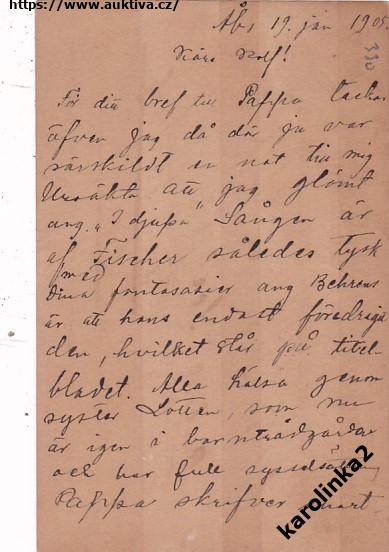 https://www.auktiva.cz/
Åbo 19. jan 1905.
330
Kära Rolf!
För ditt bref till Pappa tackar
äfven jag då där ju var
särskildt en not till mig
Ursäkta att jag glömt
ang. "I djupa" Sången är
af Fischer således tysk
med
dina fantasier ang Behrens
är att hans endast föredraga
den, hvilket står på titel-
bladet. Alla hälsa genom
syster Lotten, som nu
är igen i barnträdgården
och har full sysselsättning
Pappa skrifver snart
karolinka2